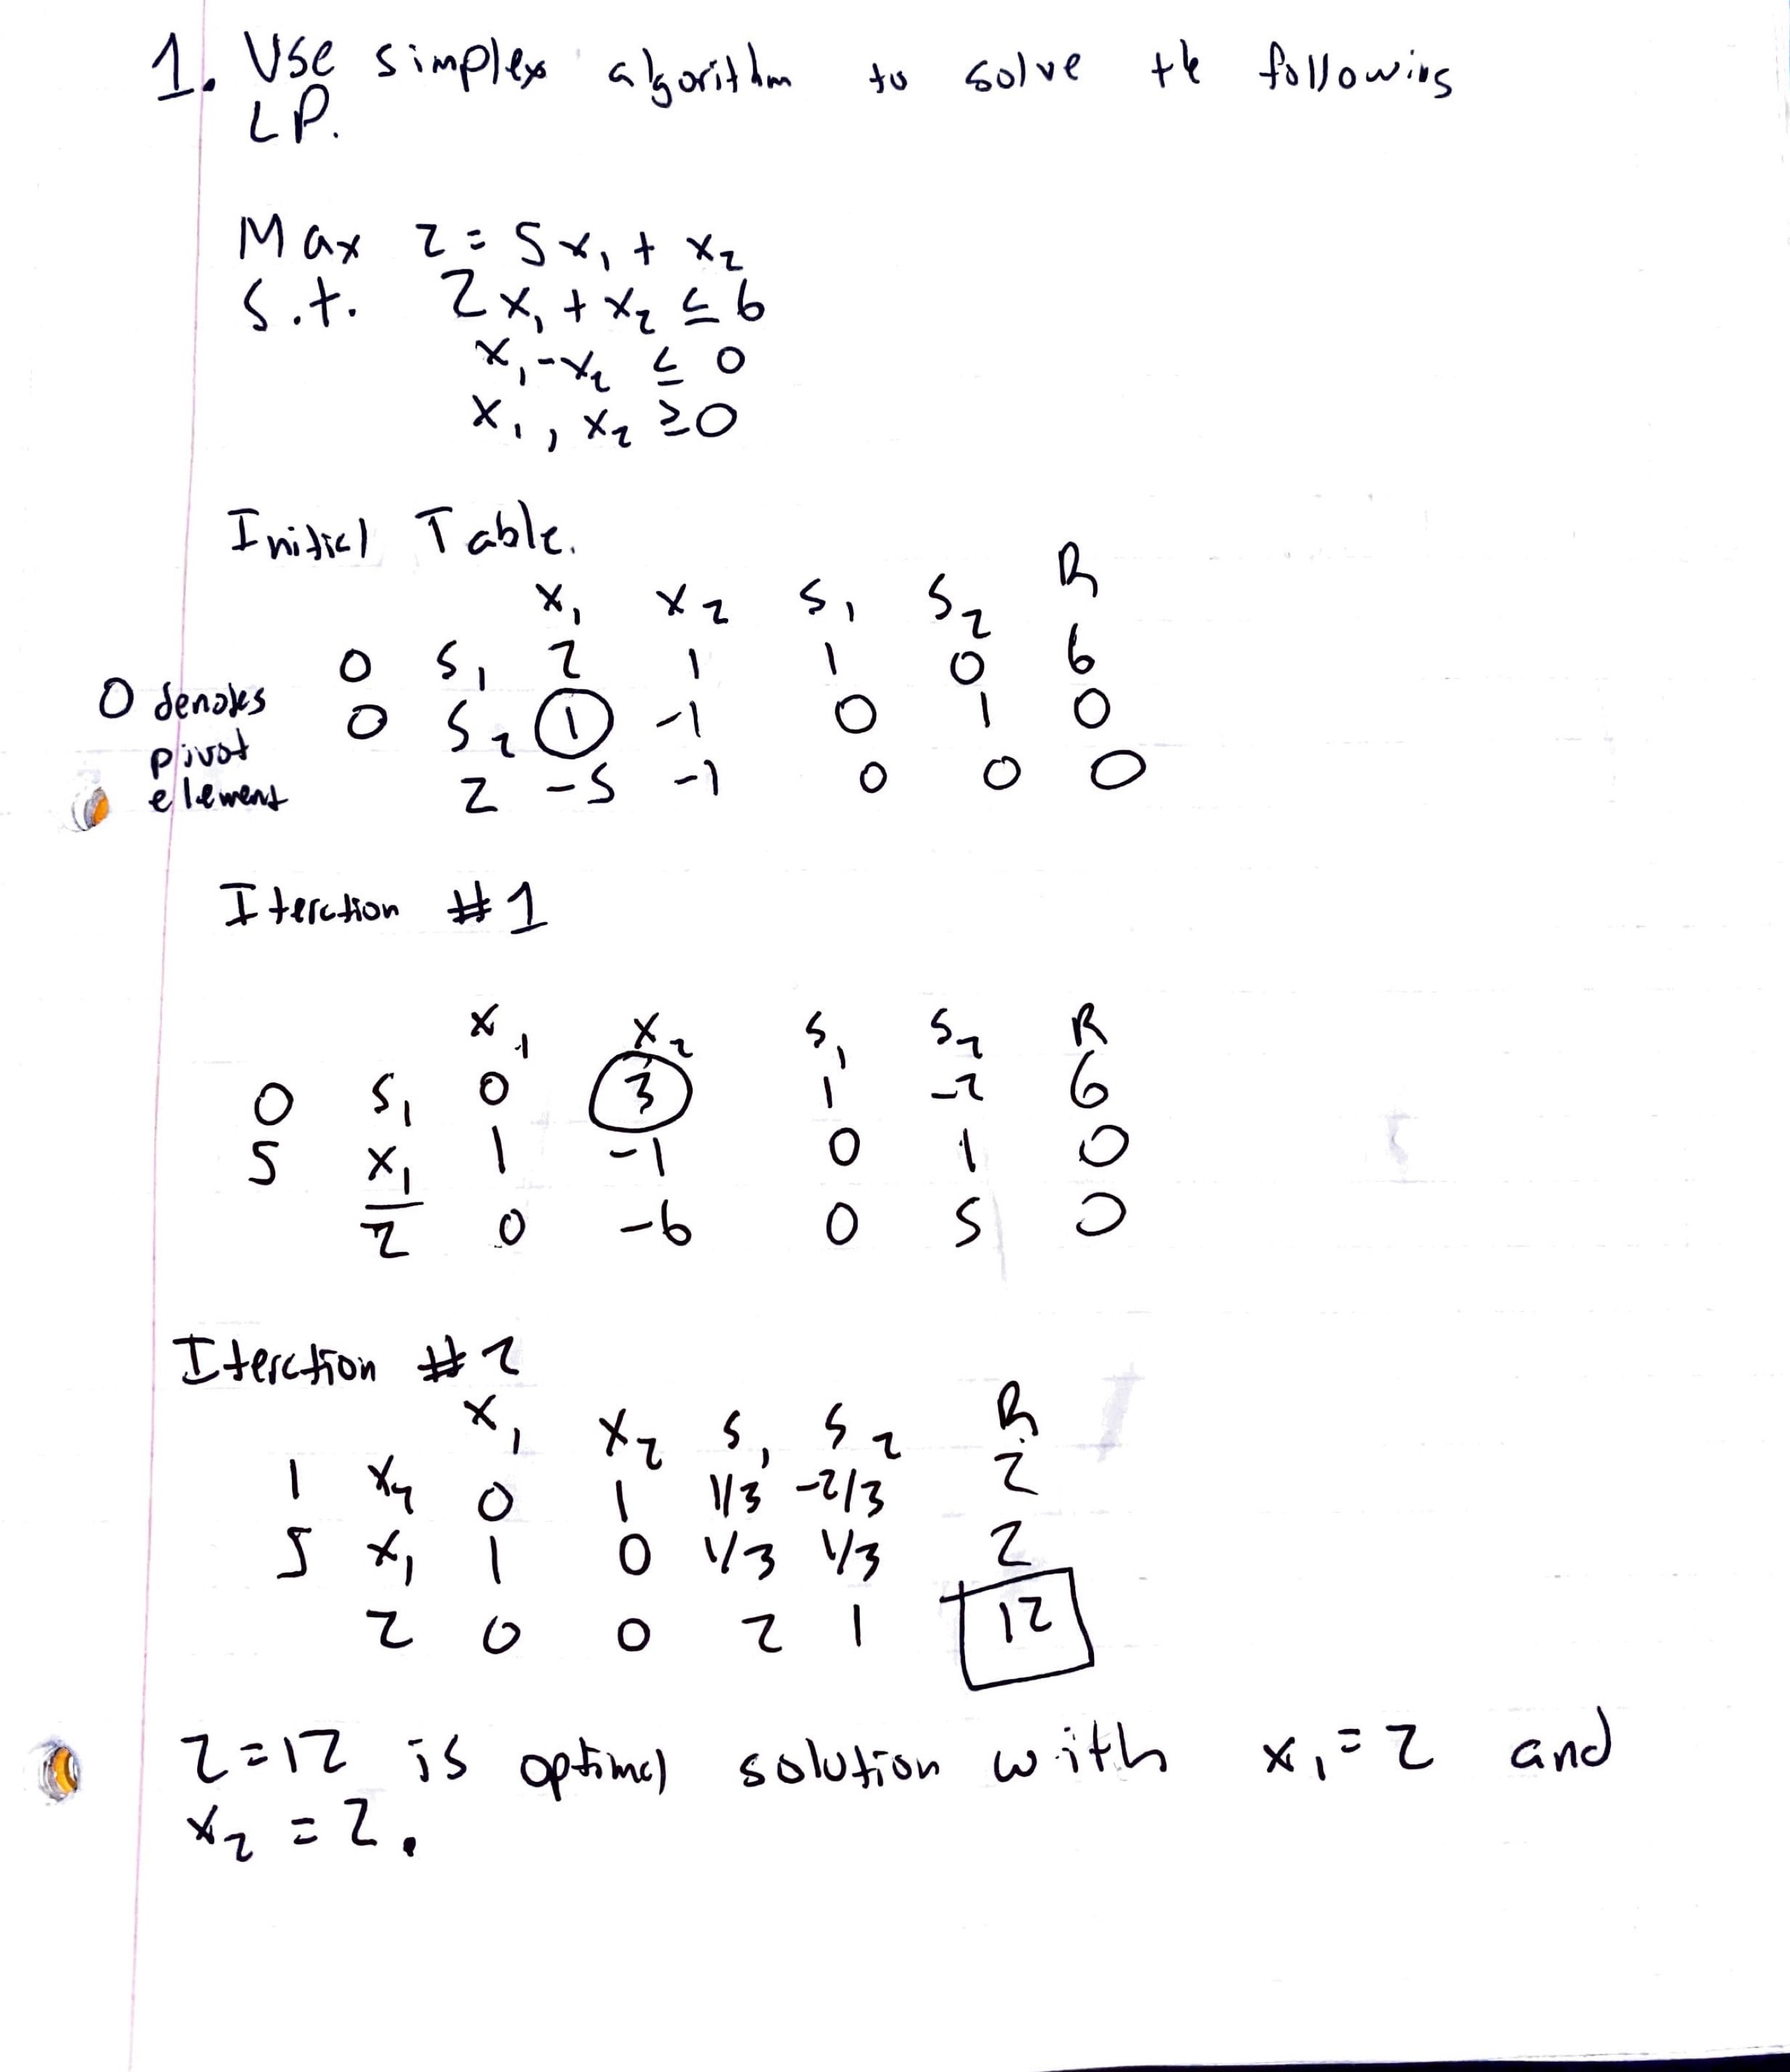 1. Use simplex algorithm to solve the following
LP.
Max z = 5x₁ + x₂
s.t. 2x₁ + x₂ ≤ 6
x₁ - x₂ ≤ 0
x₁, x₂ ≥ 0
Initial Table.
x₁ x₂ s₁ s₂ R
0 s₁ 2 1 1 0 6
0 s₂ 1 -1 0 1 0
z -5 -1 0 0 0
O denotes
pivot
element
Iteration #1
x₁ x₂ s₁ s₂ R
0 s₁ 0 3 1 -2 6
5 x₁ 1 -1 0 1 0
z 0 -6 0 5 0
Iteration #2
x₁ x₂ s₁ s₂ R
1 x₂ 0 1 1/3 -2/3 2
5 x₁ 1 0 1/3 1/3 2
z 0 0 2 1 12
z = 12 is optimal solution with x₁ = 2 and
x₂ = 2.